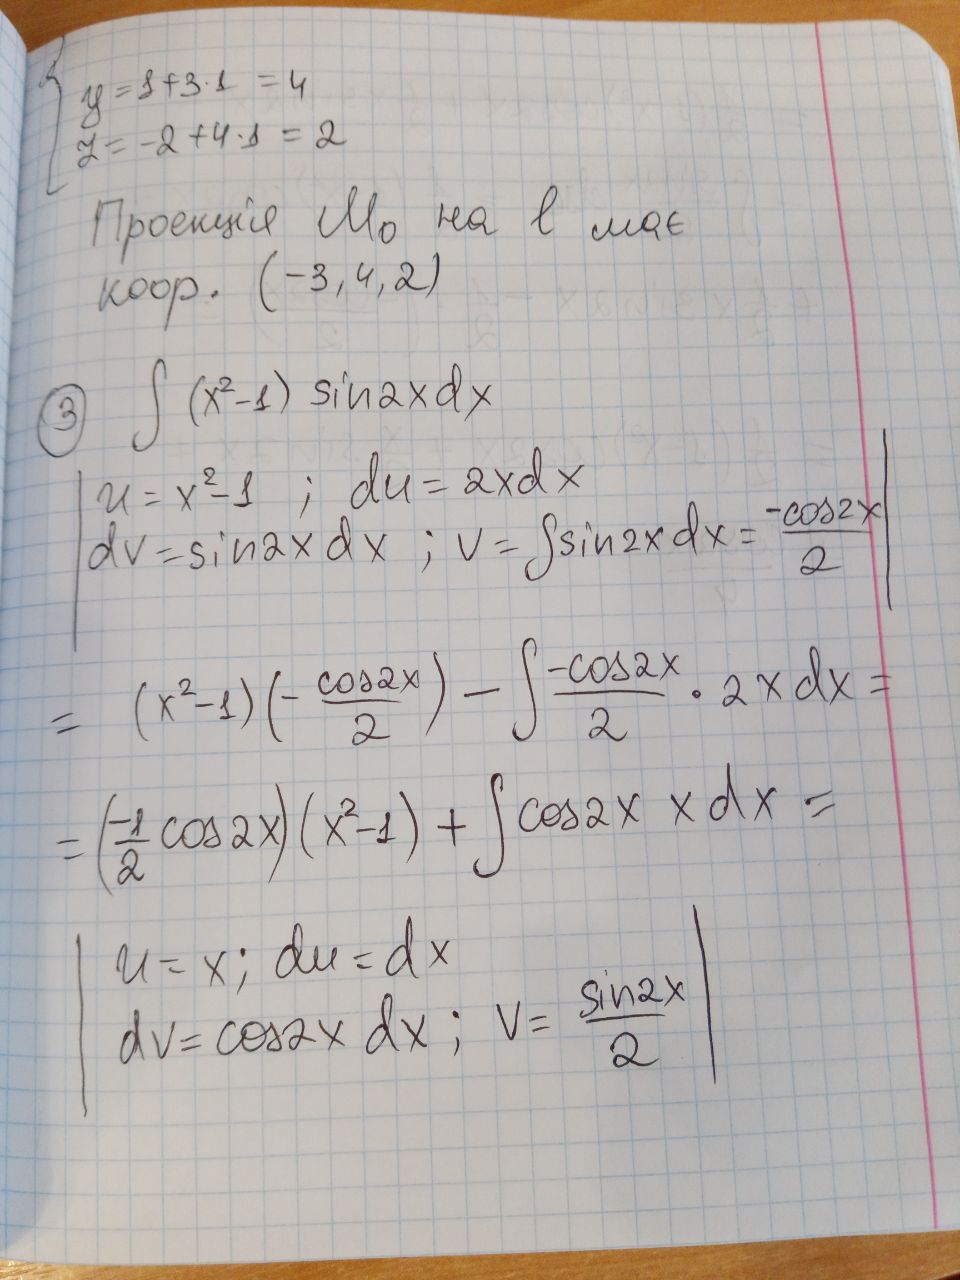 y = 1+3·1 = 4
z = -2+4·1 = 2
Проекція M₀ на l має
коор. (-3, 4, 2)
③ ∫ (x²-1) sin2x dx
u = x²-1 ; du = 2xdx
dv = sin2x dx ; v = ∫sin2x dx = -cos2x/2
= (x²-1)(- cos2x/2) - ∫ -cos2x/2 · 2x dx =
= (-1/2 cos2x)(x²-1) + ∫ cos2x x dx =
u = x; du = dx
dv = cos2x dx; v = sin2x/2